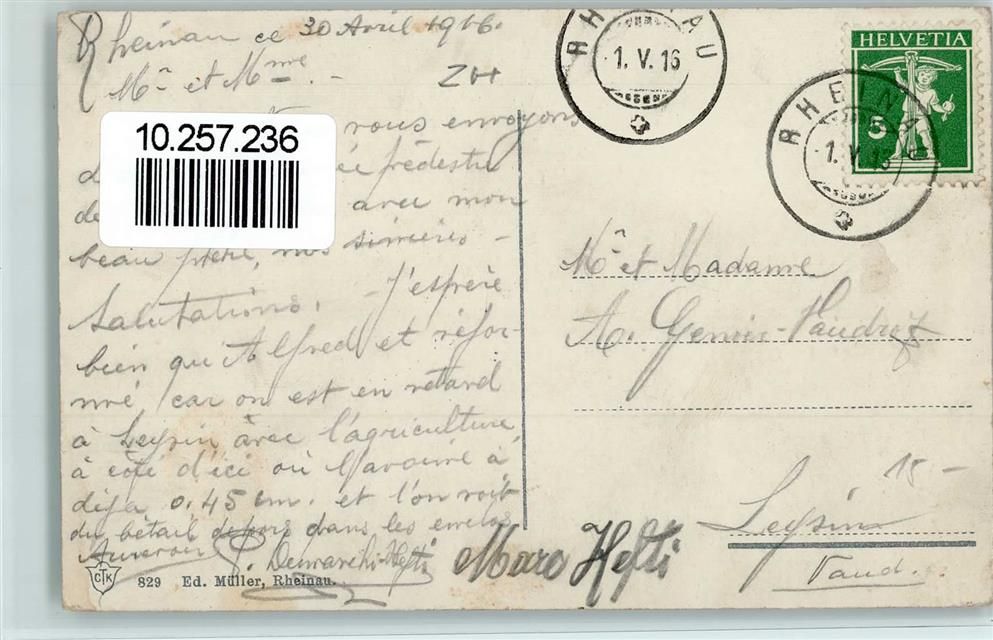 Rheinau ce 30 Avril 1916.
Mr et Mme. -
ZH
vous envoyons
avec mon
beau père, nos sincères -
Salutations. J'espère
bien qu'Alfred et réfor-
mé, car on est en retard
à Leysin avec l'agriculture
à côté d'ici où l'avoine à
déja 0.45 cm. et l'on voit
du bétail dehors dans les enclos
Aurevoir
Marc Hefti
829 Ed. Müller, Rheinau.
CTK
10.257.236
RHEINAU
1. V. 16
HELVETIA
5
RHEINAU
1. V. 16
Mr et Madame
A.
15 -
Leysin
Vaud.